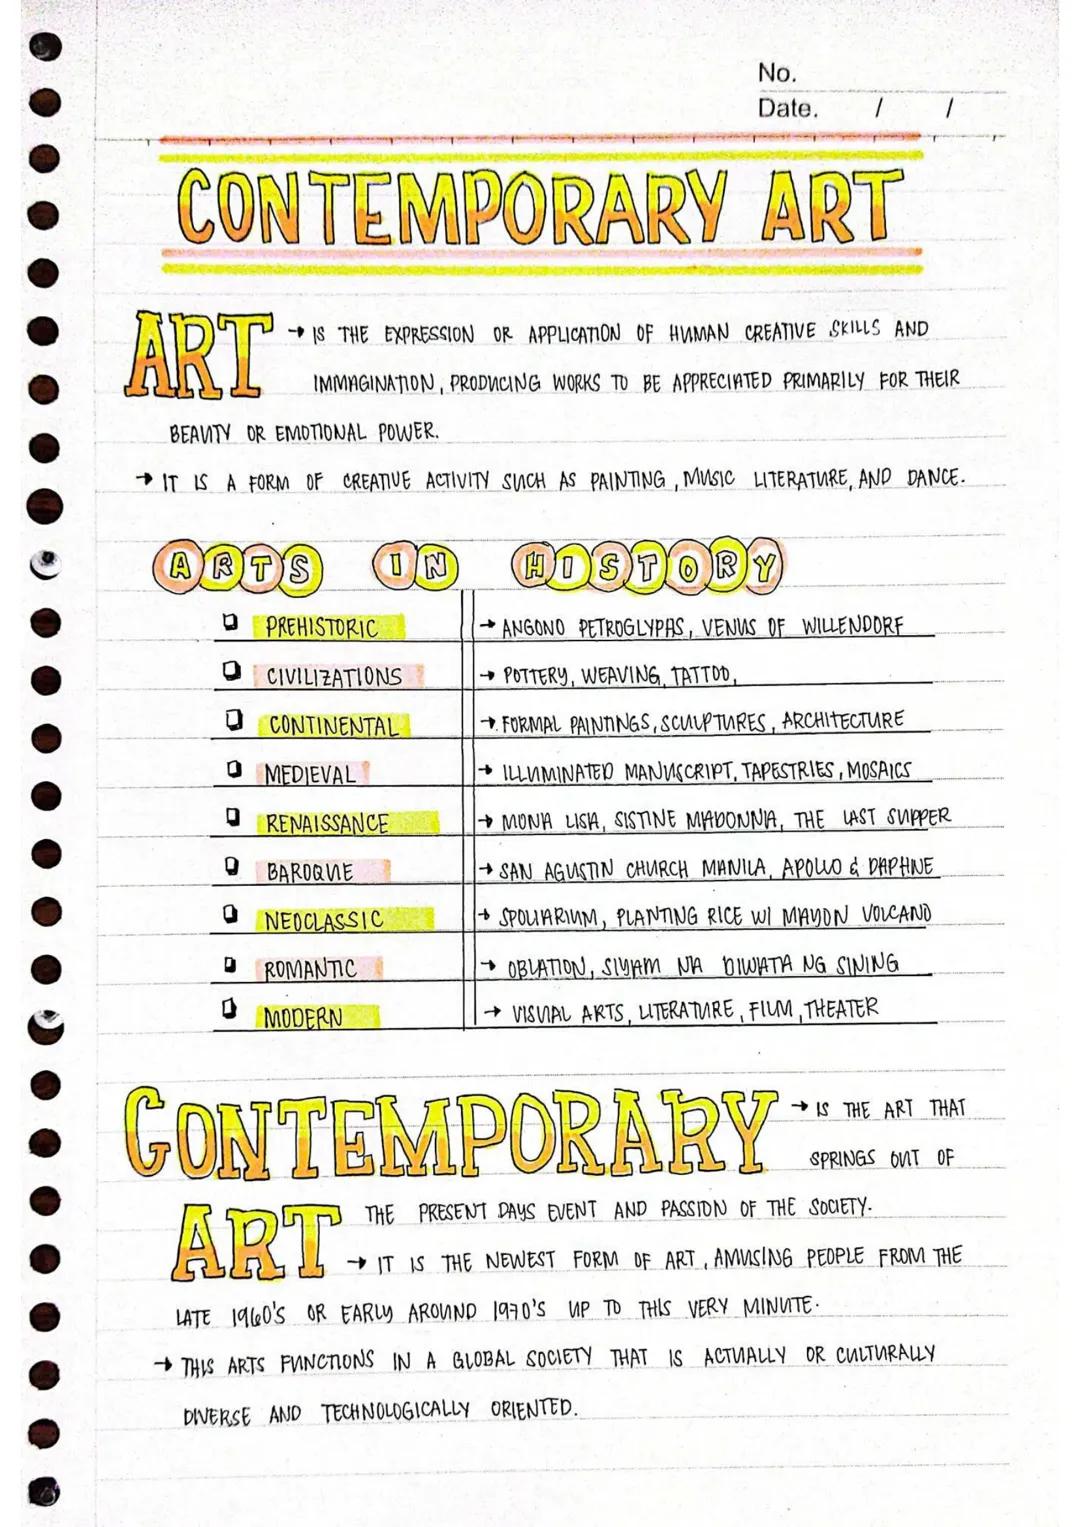 No.
Date. / /
CONTEMPORARY ART
ART → IS THE EXPRESSION OR APPLICATION OF HUMAN CREATIVE SKILLS AND
IMMAGINATION, PRODUCING WORKS TO BE APPRECIATED PRIMARILY FOR THEIR
BEAUTY OR EMOTIONAL POWER.
→ IT IS A FORM OF CREATIVE ACTIVITY SUCH AS PAINTING, MUSIC LITERATURE, AND DANCE.
ARTS IN HISTORY
PREHISTORIC → ANGONO PETROGLYPAS, VENUS OF WILLENDORF
CIVILIZATIONS → POTTERY, WEAVING, TATTOO,
CONTINENTAL → FORMAL PAINTINGS, SCULPTURES, ARCHITECTURE
MEDIEVAL → ILLUMINATED MANUSCRIPT, TAPESTRIES, MOSAICS
RENAISSANCE → MONA LISA, SISTINE MADONNA, THE LAST SUPPER
BAROQUE → SAN AGUSTIN CHURCH MANILA, APOLLO & DAPHNE
NEOCLASSIC → SPOLIARIUM, PLANTING RICE W/ MAYON VOLCANO
ROMANTIC → OBLATION, SIYAM NA DIWATA NG SINING
MODERN → VISUAL ARTS, LITERATURE, FILM, THEATER
CONTEMPORARY → IS THE ART THAT
SPRINGS OUT OF
ART THE PRESENT DAYS EVENT AND PASSION OF THE SOCIETY.
→ IT IS THE NEWEST FORM OF ART, AMUSING PEOPLE FROM THE
LATE 1960'S OR EARLY AROUND 1970'S UP TO THIS VERY MINUTE.
→ THIS ARTS FUNCTIONS IN A GLOBAL SOCIETY THAT IS ACTUALLY OR CULTURALLY
DIVERSE AND TECHNOLOGICALLY ORIENTED.